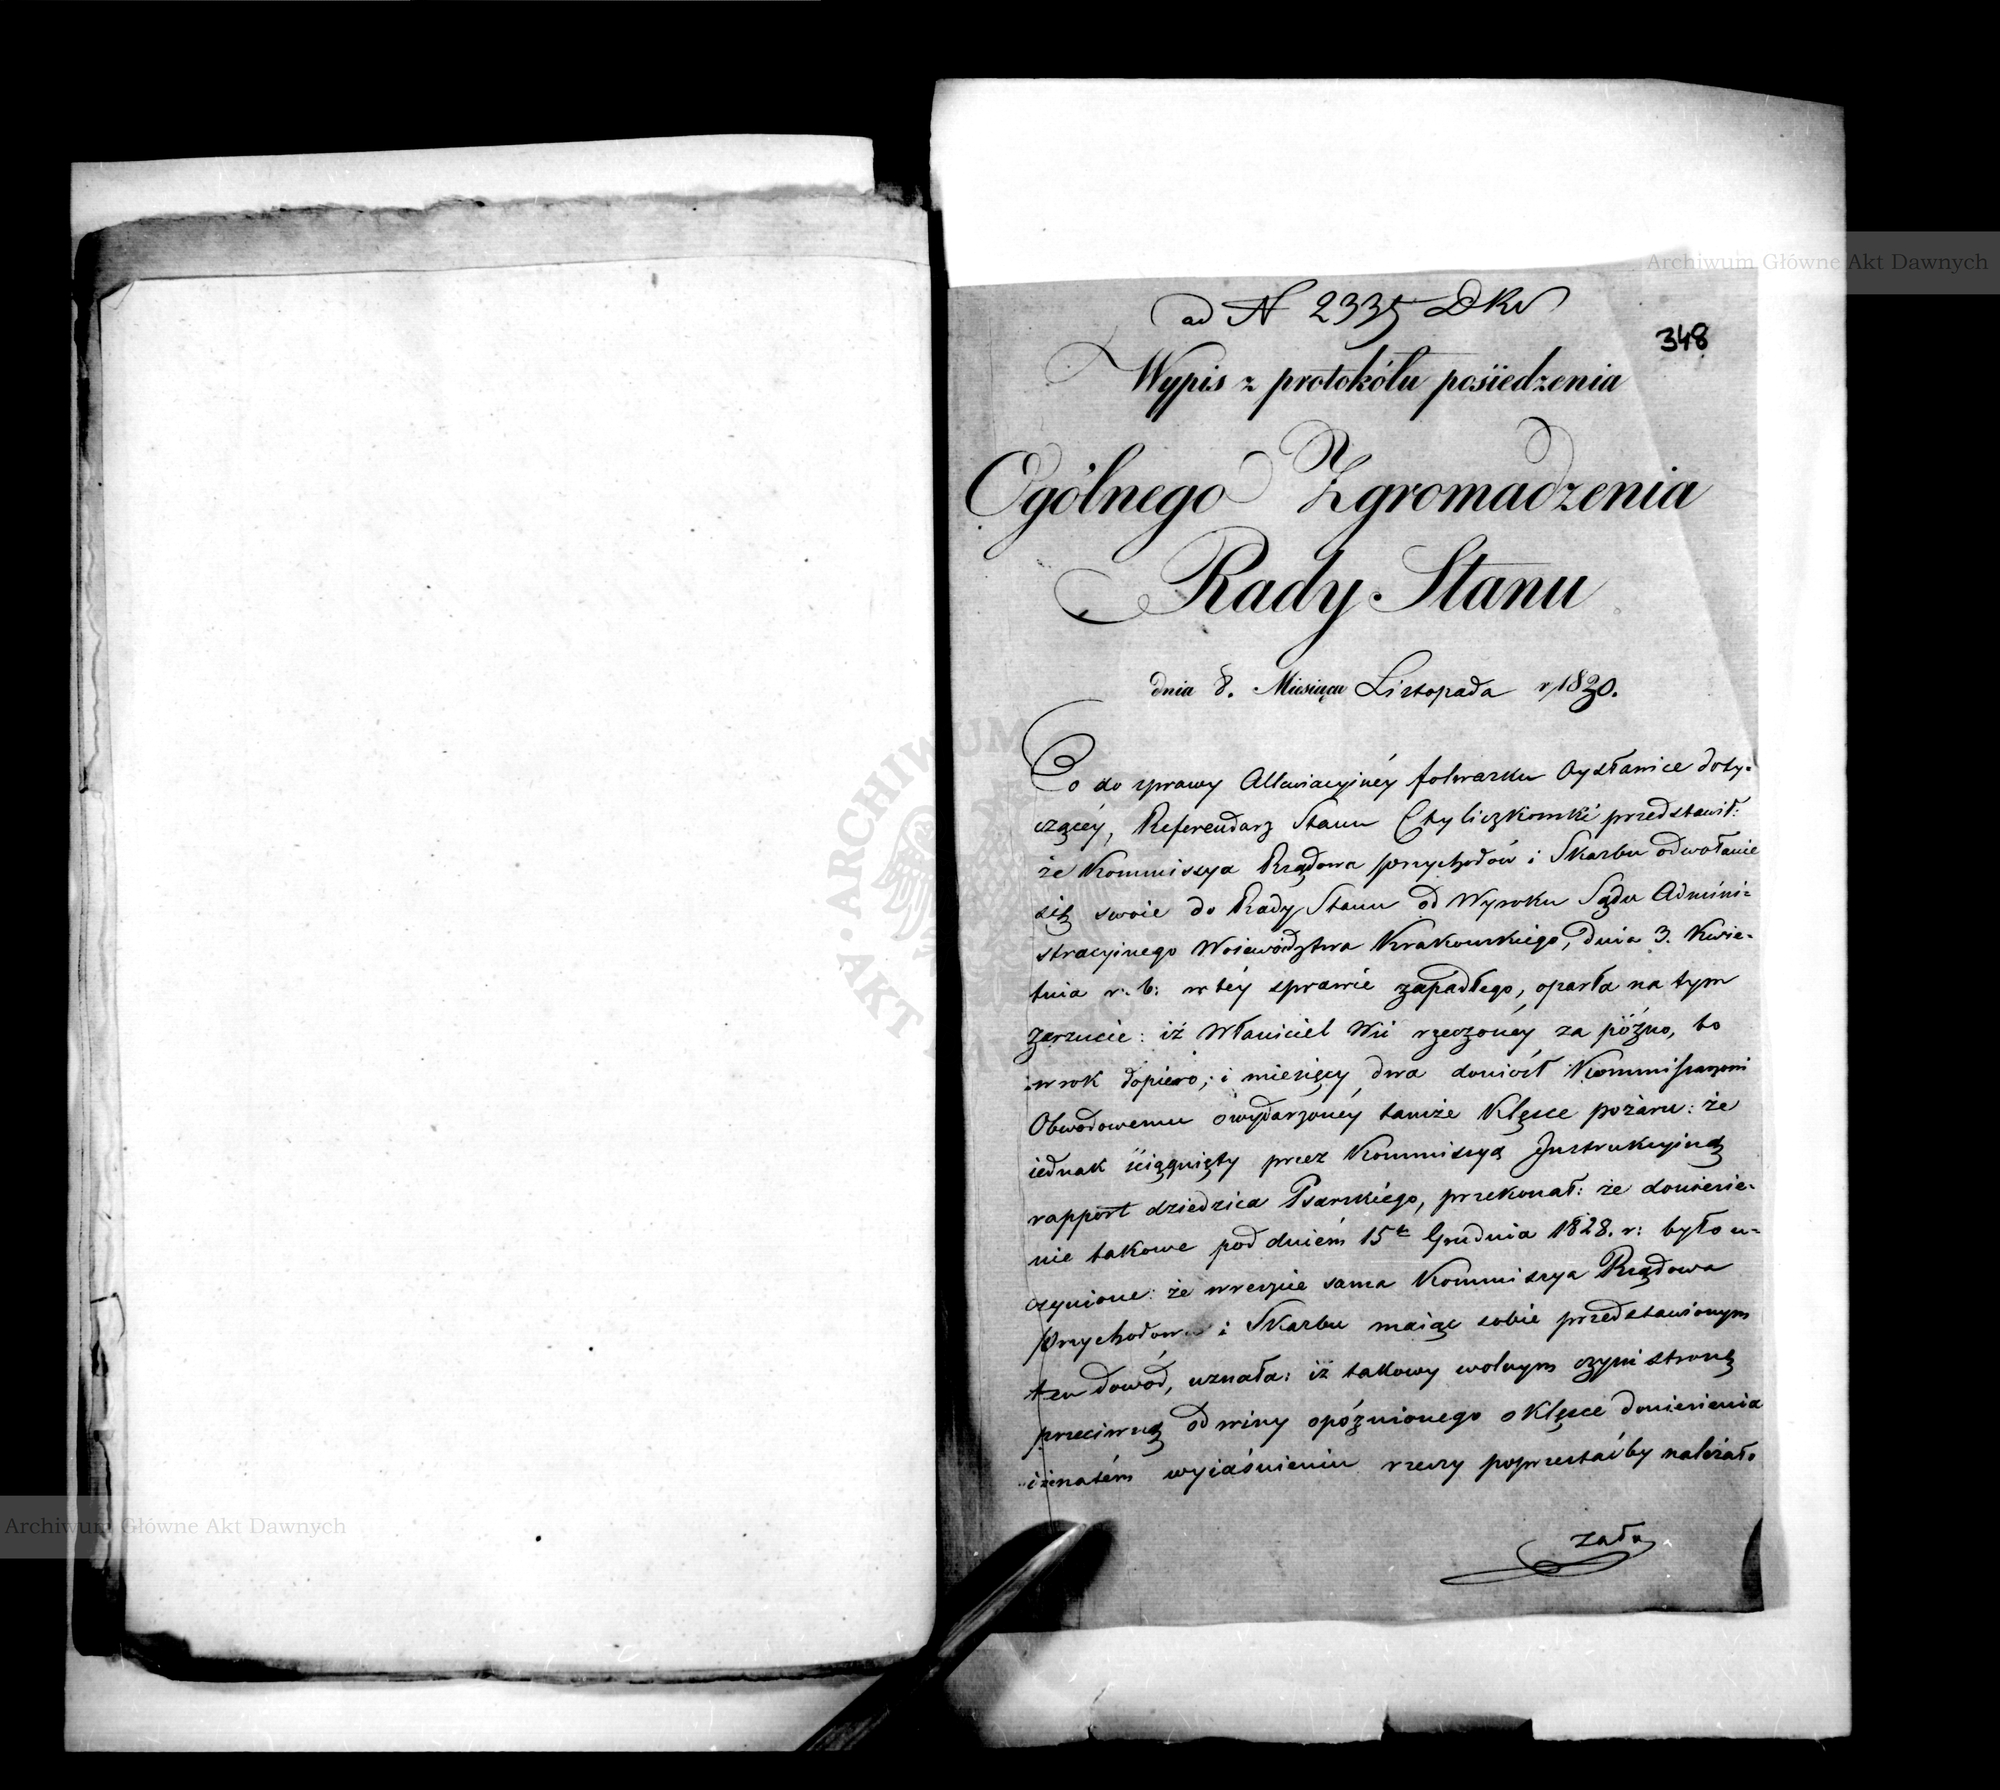 Archiwum Główne Akt Dawnych
ad N 2335 DKw
348
Wypis z protokółu posiedzenia
Ogólnego Zgromadzenia
Rady Stanu
dnia 8. Miesiąca Listopada r. 1830.
Co do sprawy Allewiacyinéy folwarku doty=
czącéy, Referendarz Stanu przedstawił:
że Kommissya Rządowa Przychodów i Skarbu odwołanie
się swoie do Rady Stanu od Wyroku Sądu Admini=
stracyinego Woiewództwa Krakowskiego, dnia 3. Kwie=
tnia r: b: w téy sprawie zapadłego, oparła na tym
zarzucie: iż Właściciel Wsi rzeczonéy za późno, bo
w rok dopiero, i miesięcy dwa doniósł Kommissarzowi
Obwodowemu o wydarzonéy tamże Klęsce pożaru: że
iednak ściągnięty przez Kommissyą Instrukcyiną
rapport dziedzica Psarskiego, przekonał: że doniesie=
nie takowe pod dniem 15te Grudnia 1828. r: było u=
czynione: że wreszcie sama Kommissya Rządowa
Przychodów i Skarbu maiąc sobie przedstawionym
ten dowód, uznała: iż takowy wolnym czyni stronę
przeciwną od winy opóźnionego o Klęsce doniesienia
i że na tém wyiaśnieniu rzeczy poprzestaćby należało
ARCHIWUM
AKT
Archiwum Główne Akt Dawnych